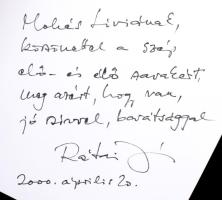 Mohás Líviának,
köszönettel a szép
élő- és élő szavakért,
meg azért, hogy van,
jó szívvel, barátsággal
Rátki
2000. április 20.